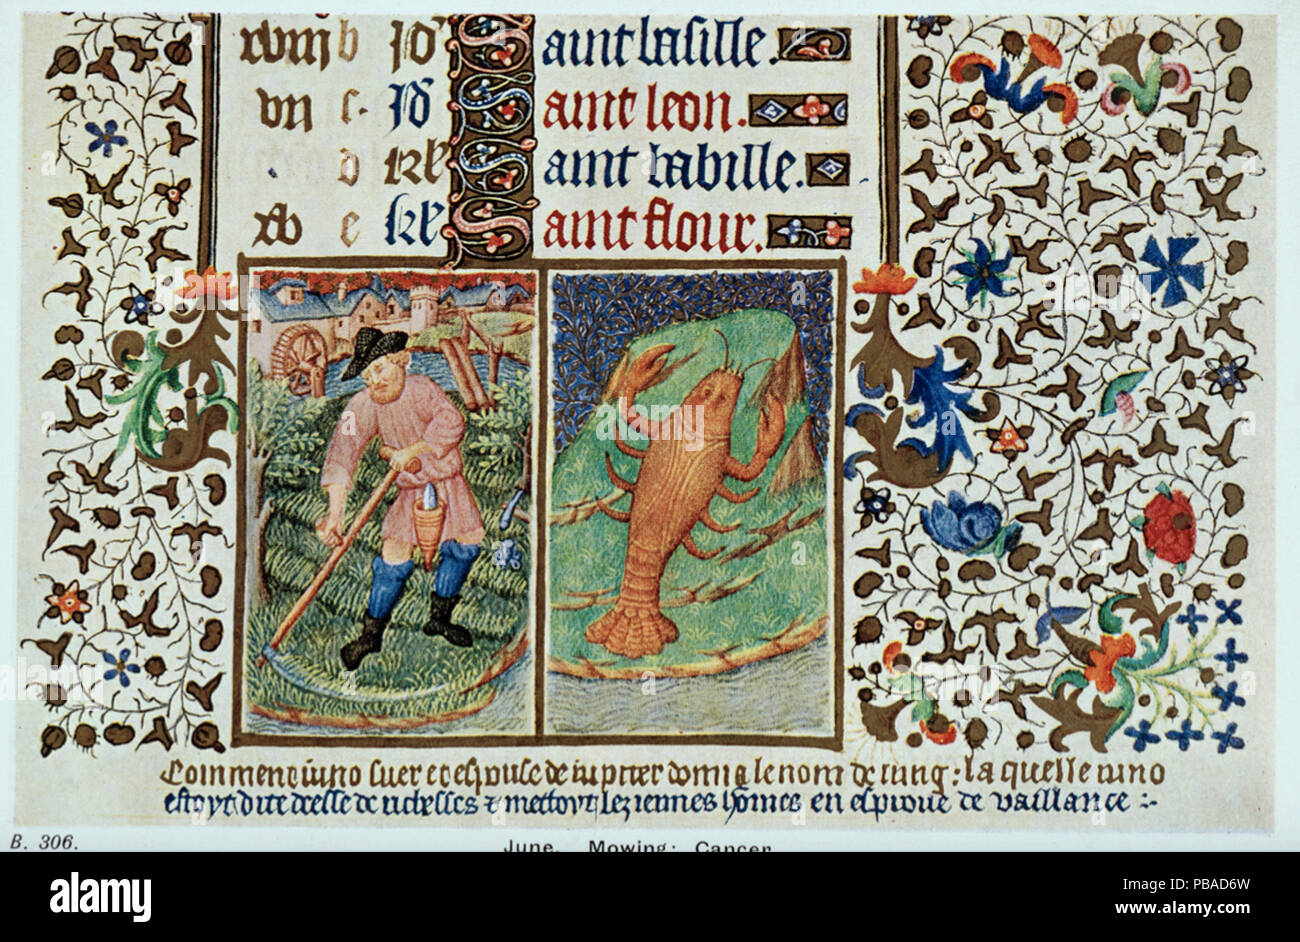 xviii b Id' Saint basille.
vii c. Id' Saint leon.
d kl' Saint babille.
xv e kl' Saint flour.
Comment iuno suer et espouse de iupiter donna le nom de iung : la quelle iuno
estoyt dite deesse de richesses & mettoyt lez iennes homes en espreuue de vaillance :-
B. 306.
June. Mowing: Cancer
alamy
Image ID: PBAD6W
www.alamy.com